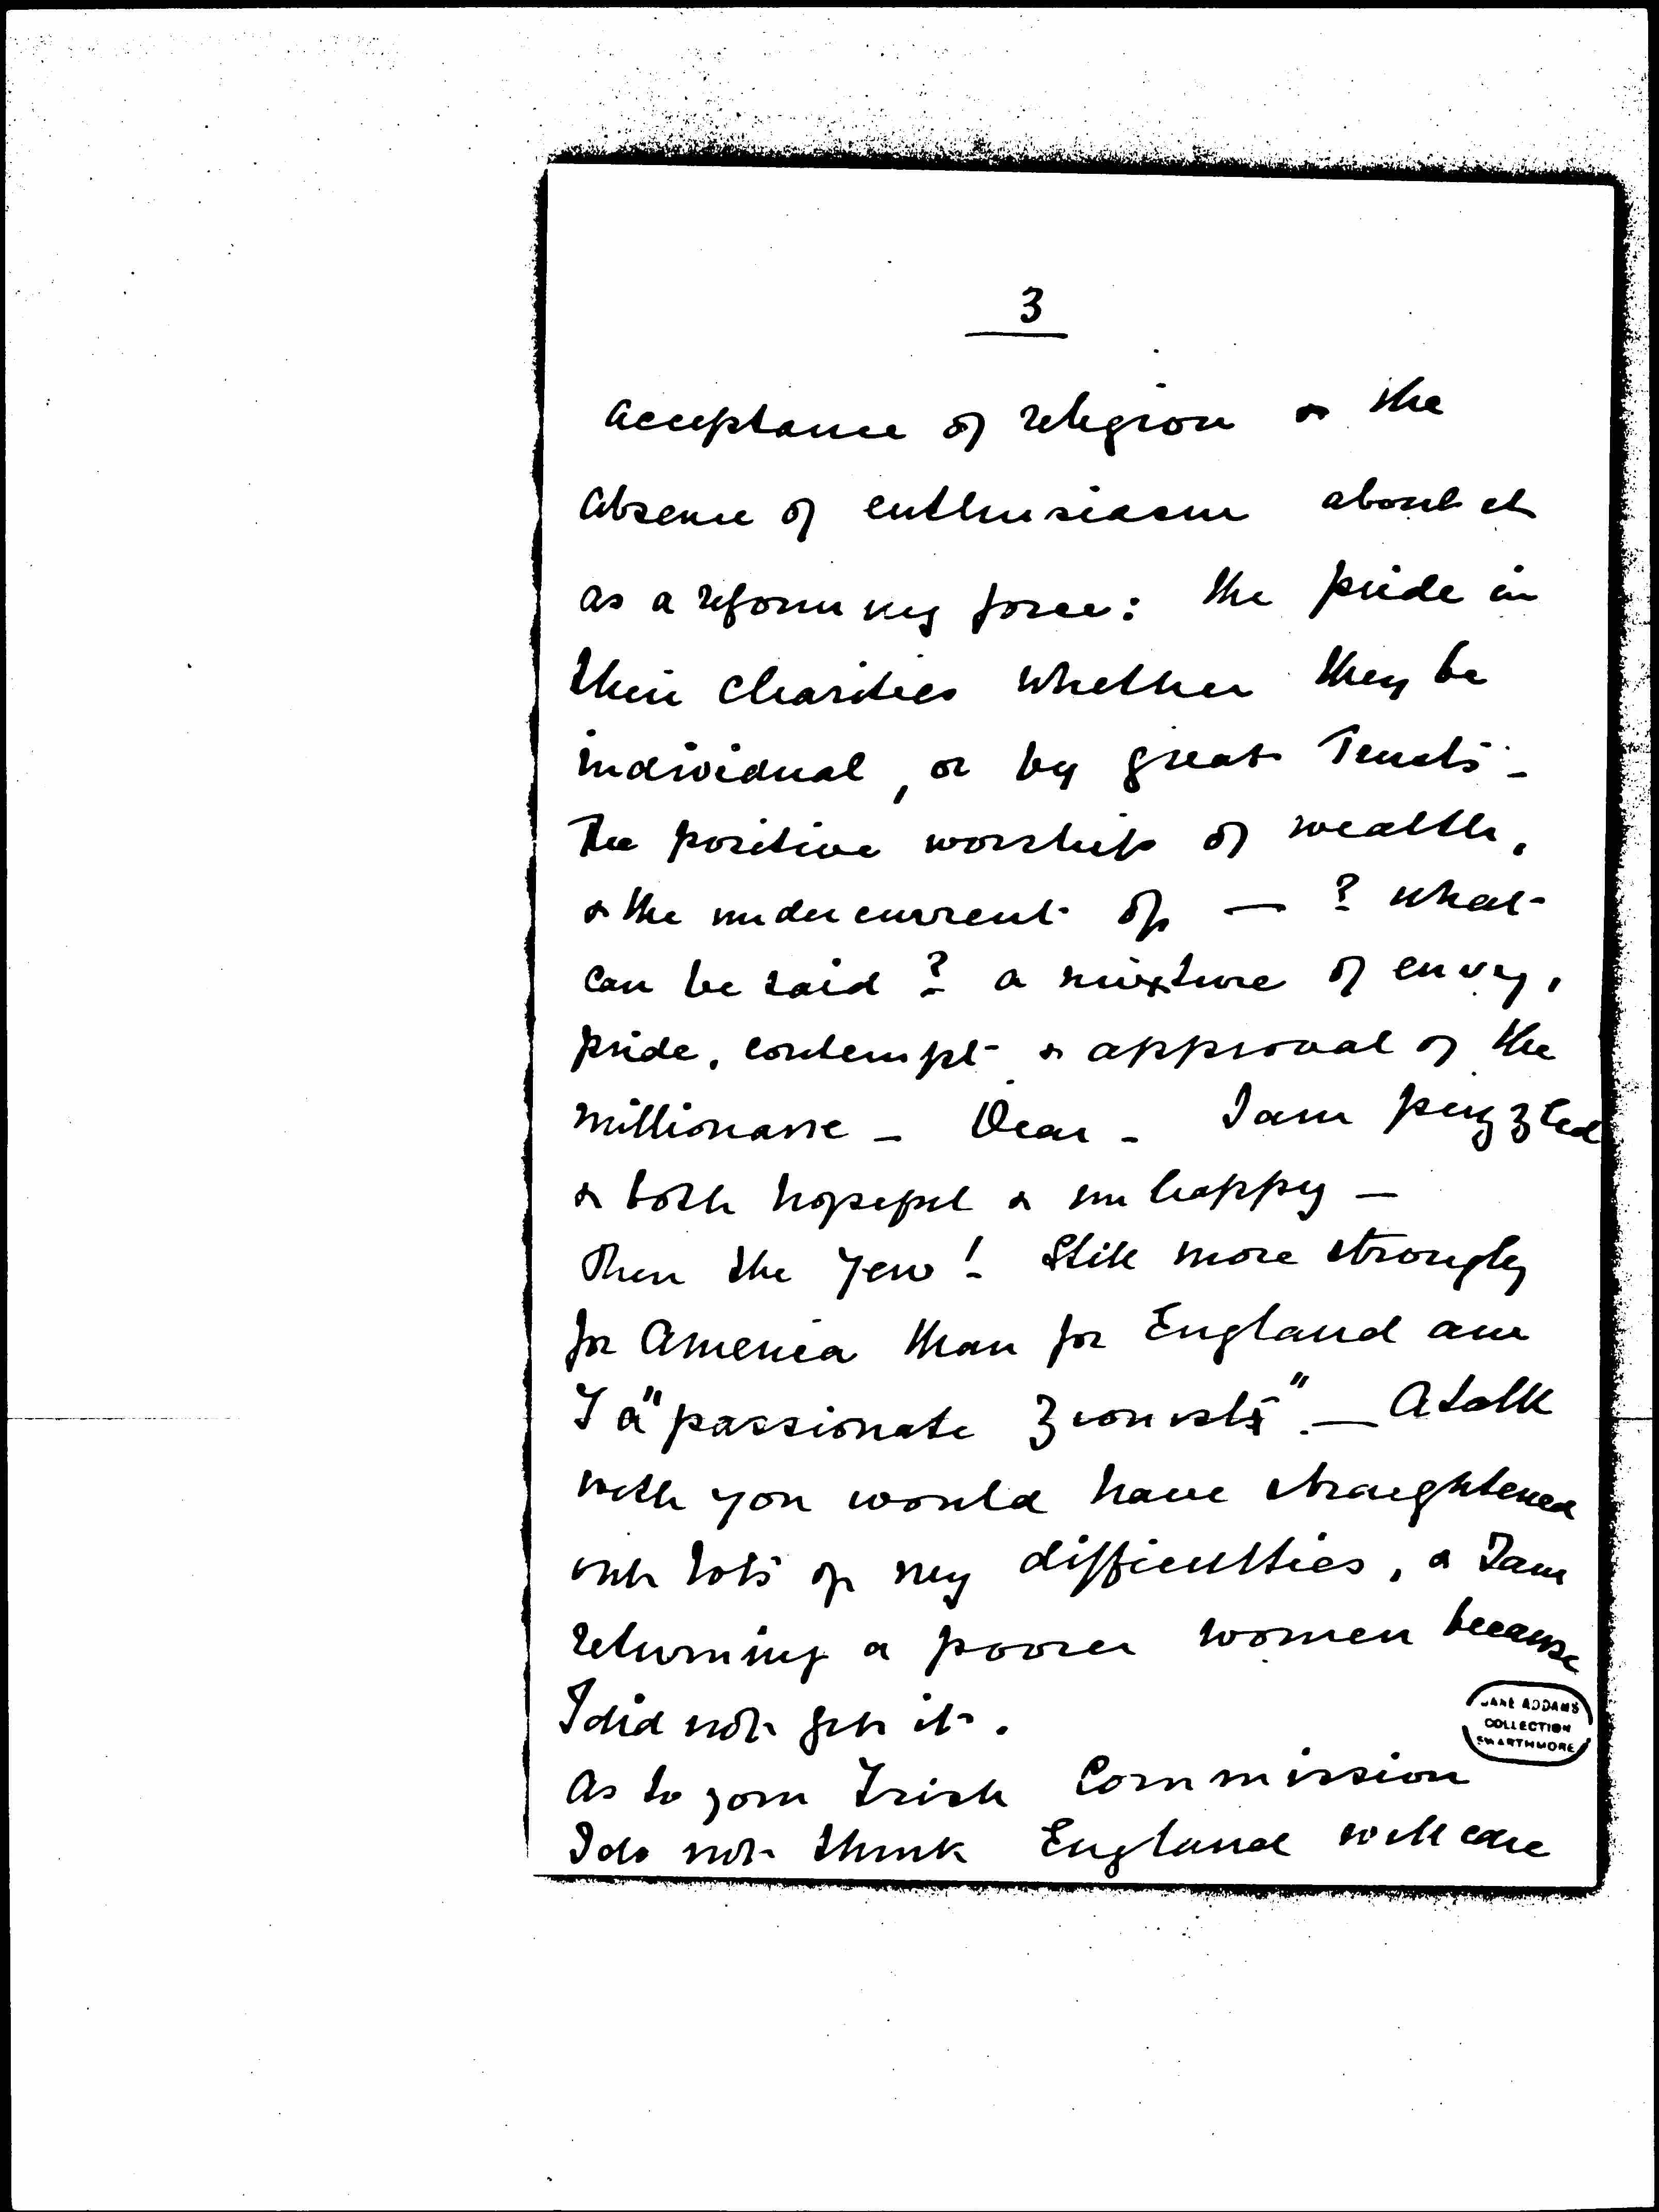 3
acceptance of religion & the
absence of enthusiasm about it
as a reforming force: the pride in
their charities whether they be
individual, or by great Trusts -
The positive worship of wealth,
& the undercurrent of — ? what
can be said? a mixture of envy,
pride, contempt & approval of the
millionaire - Dear - I am puzzled
& both hopeful & unhappy —
Then the Jew! Still more strongly
for America than for England am
I a "passionate Zionist". — A talk
with you would have straightened
out lots of my difficulties, & I am
returning a poorer women because
I did not get it.
JANE ADDAMS
COLLECTION
SWARTHMORE
As to your Irish Commission
I do not think England will care